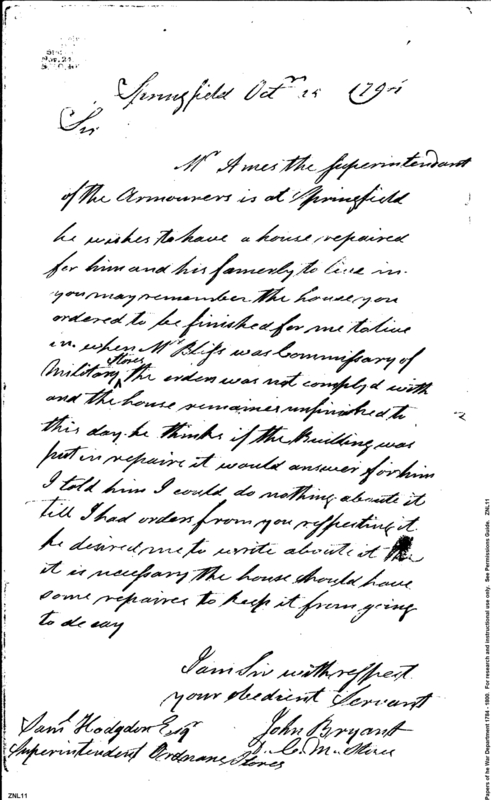 Springfield Octr 25 1794
Sir
Mr Ames the Superintendant
of the Armourers is at Springfield
he wishes to have a house repaired
for him and his famerly to live in
you may remember the house you
ordered to be finished for me to live
in. when Mr Bliss was Commissary of
Military Stores the orders was not complyd with
and the house remaines unfinished to
this day. he thinks if the Building was
put in repaire it would answer for him
I told him I could do nothing aboute it
till I had orders from you respecting it
he desired me to write aboute it
it is necessary the house should have
some repaires to keep it from going
to decay
I am Sir with respect
your obedient Servant
John Bryant
D. C. M. Stores
Saml Hodgdon Esqr
Superintendent Ordnance Stores
ZNL11
Papers of he War Department 1784 - 1800. For research and instructional use only. See Permissions Guide. ZNL11